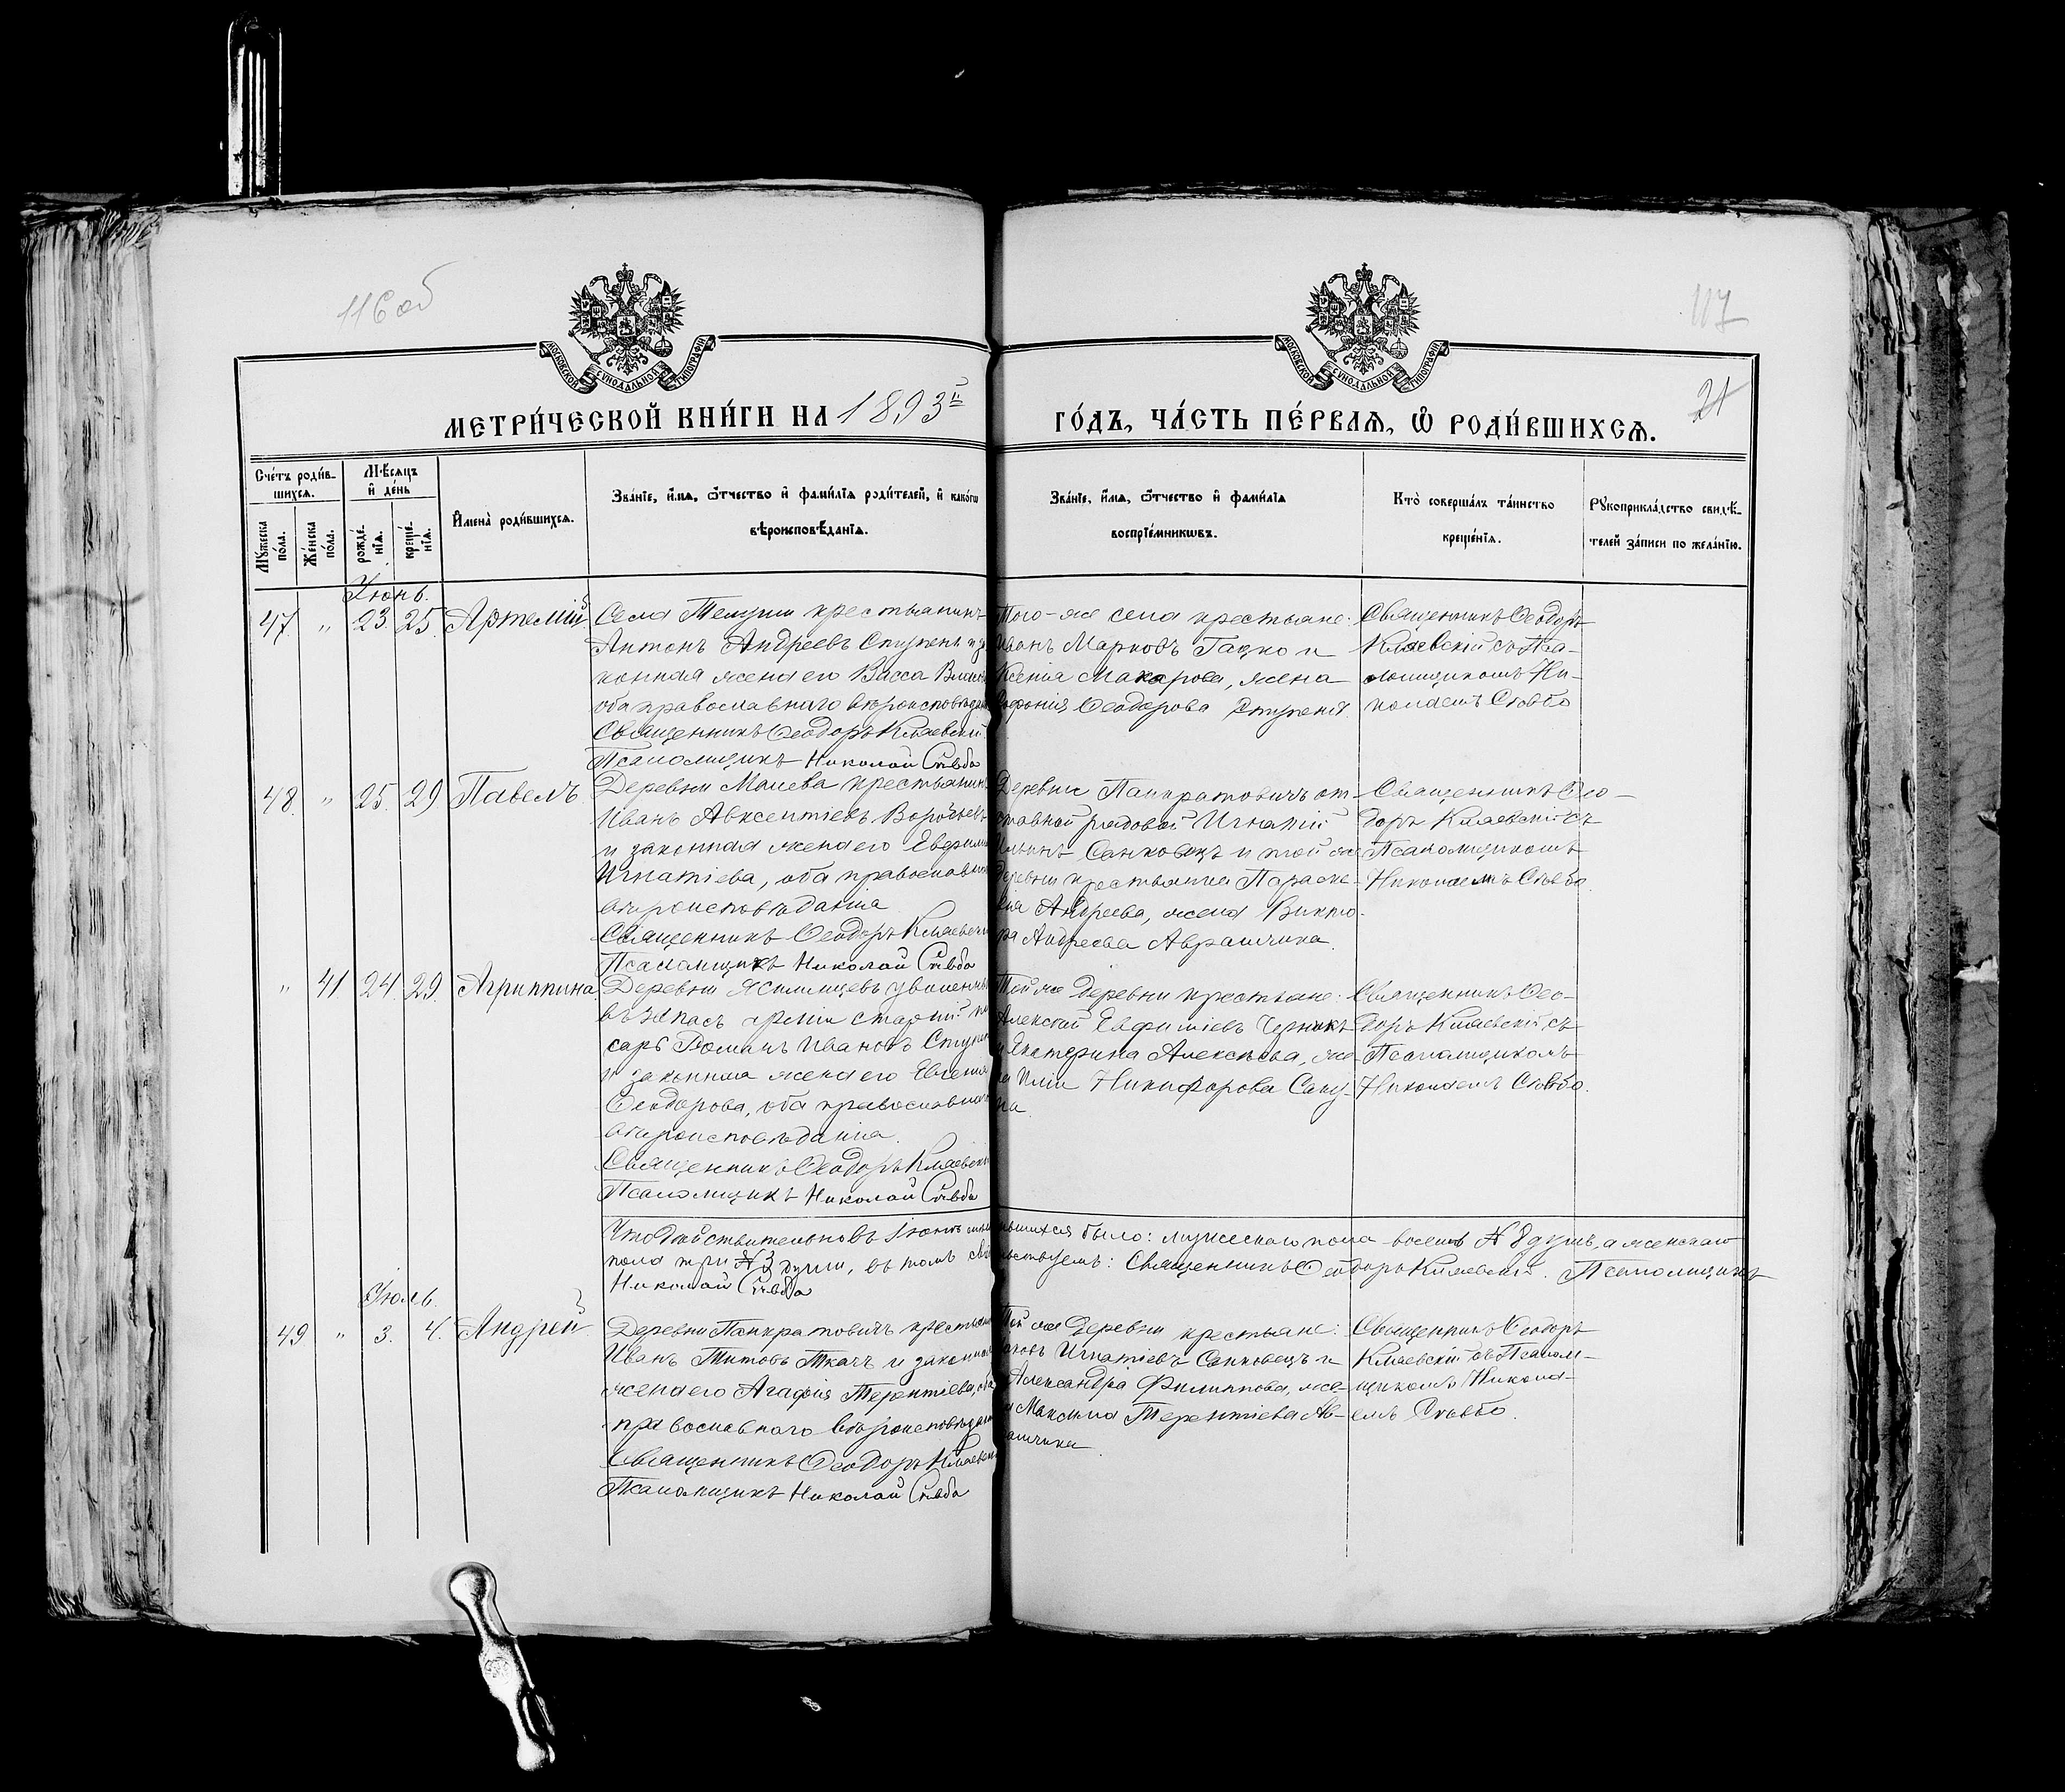 116 об
117
21
МОСКОВСКОЙ СѴНОДАЛЬНОЙ ТИПОГРАФІИ
МОСКОВСКОЙ СѴНОДАЛЬНОЙ ТИПОГРАФІИ
МЕТРИ́ЧЕСКОЙ КНИ́ГИ НА 1893й ГО́ДЪ, ЧА́СТЬ ПЕ́РВАѦ, Ѡ РОДИ́ВШИХСѦ.
Сче́тъ роди́в-
шихсѧ.
Мꙋ́жеска
по́ла.
Же́нска
по́ла.
Мѣ́сѧцъ
и҆ де́нь
рожде́-
нїѧ.
креще́-
нїѧ.
И҆мена̀ роди́вшихсѧ.
Зва́нїе, и҆́мѧ, ѻ҆́тчество и҆ фамѝлїѧ роди́телей, и҆ како́гѡ
вѣроисповѣ́данїѧ.
Зва́нїе, и҆́мѧ, ѻ҆́тчество и҆ фамѝлїѧ
воспрїе́мникѡвъ.
Кто̀ соверша́лъ та́инство
креще́нїѧ.
Рꙋкоприкла́дство свидѣ́-
телей за́писи по жела́нїю.
Іюнь.
47. " 23. 25. Артемій
Села Телуши крестьянинъ
Антонъ Андреевъ Ступень и за
конная жена его Васса
оба православнаго вѣроисповѣдан
Священникъ Ѳеодоръ Кляевскій
Псаломщикъ Николай Сѣвбо
Того-же села крестьяне:
Иванъ Марковъ Гацко и
Ксенія Макарова, жена
Ѳеодорова Ступеня
Священникъ Ѳеодоръ
Кляевскій съ Пса-
ломщикомъ Ни-
колаемъ Сѣвбо
48. " 25. 29. Павелъ
Деревни Мачева крестьянинъ
Иванъ Авксентіевъ Воробьевъ
и законная жена его Евфимія
Игнатіева, оба православнаго
вѣроисповѣданія
Священникъ Ѳеодоръ Кляевскій
Псаломщикъ Николай Сѣвбо
Деревни Панкратовичъ от-
ставной рядовой Игнатій
Ильинъ Санковецъ и той же
деревни крестьянка Параске-
вія Андреева, жена Викто-
ра Андреева Аврамчика.
Священникъ Ѳео-
доръ Кляевскій съ
Псаломщикомъ
Николаемъ Сѣвбо.
" 41. 24. 29. Агриппина
Деревни Ясилищевъ уволенный
въ запасъ арміи старшій пи
сарь Романъ Ивановъ Ступень
и законная жена его Евгенія
Ѳеодорова, оба православнаго
вѣроисповѣданія.
Священникъ Ѳеодоръ Кляевскій
Псаломщикъ Николай Сѣвбо
Той же деревни крестьяне:
Алексій Евфиміевъ Черникъ
и Екатерина Алексѣева, же-
на Иліи Никифорова Саку-
на.
Священникъ Ѳео-
доръ Кляевскій съ
Псаломщикомъ
Николаемъ Сѣвбо.
Что дѣйствительно въ Іюнѣ мѣс родившихся было: мужескаго пола - восемь № 8 душъ, а женскаго
пола три № 3 души, въ томъ свидѣтельствуемъ: Священникъ Ѳеодоръ Кляевскій. Псаломщикъ
Николай Сѣвбо
Іюль.
49 " 3. 4. Андрей
Деревни Панкратовичъ крестьянинъ
Иванъ Титовъ Ткачъ и законная
жена его Агафія Терентіева, оба
православнаго вѣроисповѣдан
Священникъ Ѳеодоръ Кляевскій
Псаломщикъ Николай Сѣвбо
Той же деревни крестьяне:
Яковъ Игнатіевъ Санковецъ и
Александра Филиппова, же-
на Максима Терентіева Ав-
рамчика.
Священникъ Ѳеодоръ
Кляевскій съ Псалом-
щикомъ Никола-
емъ Сѣвбо.